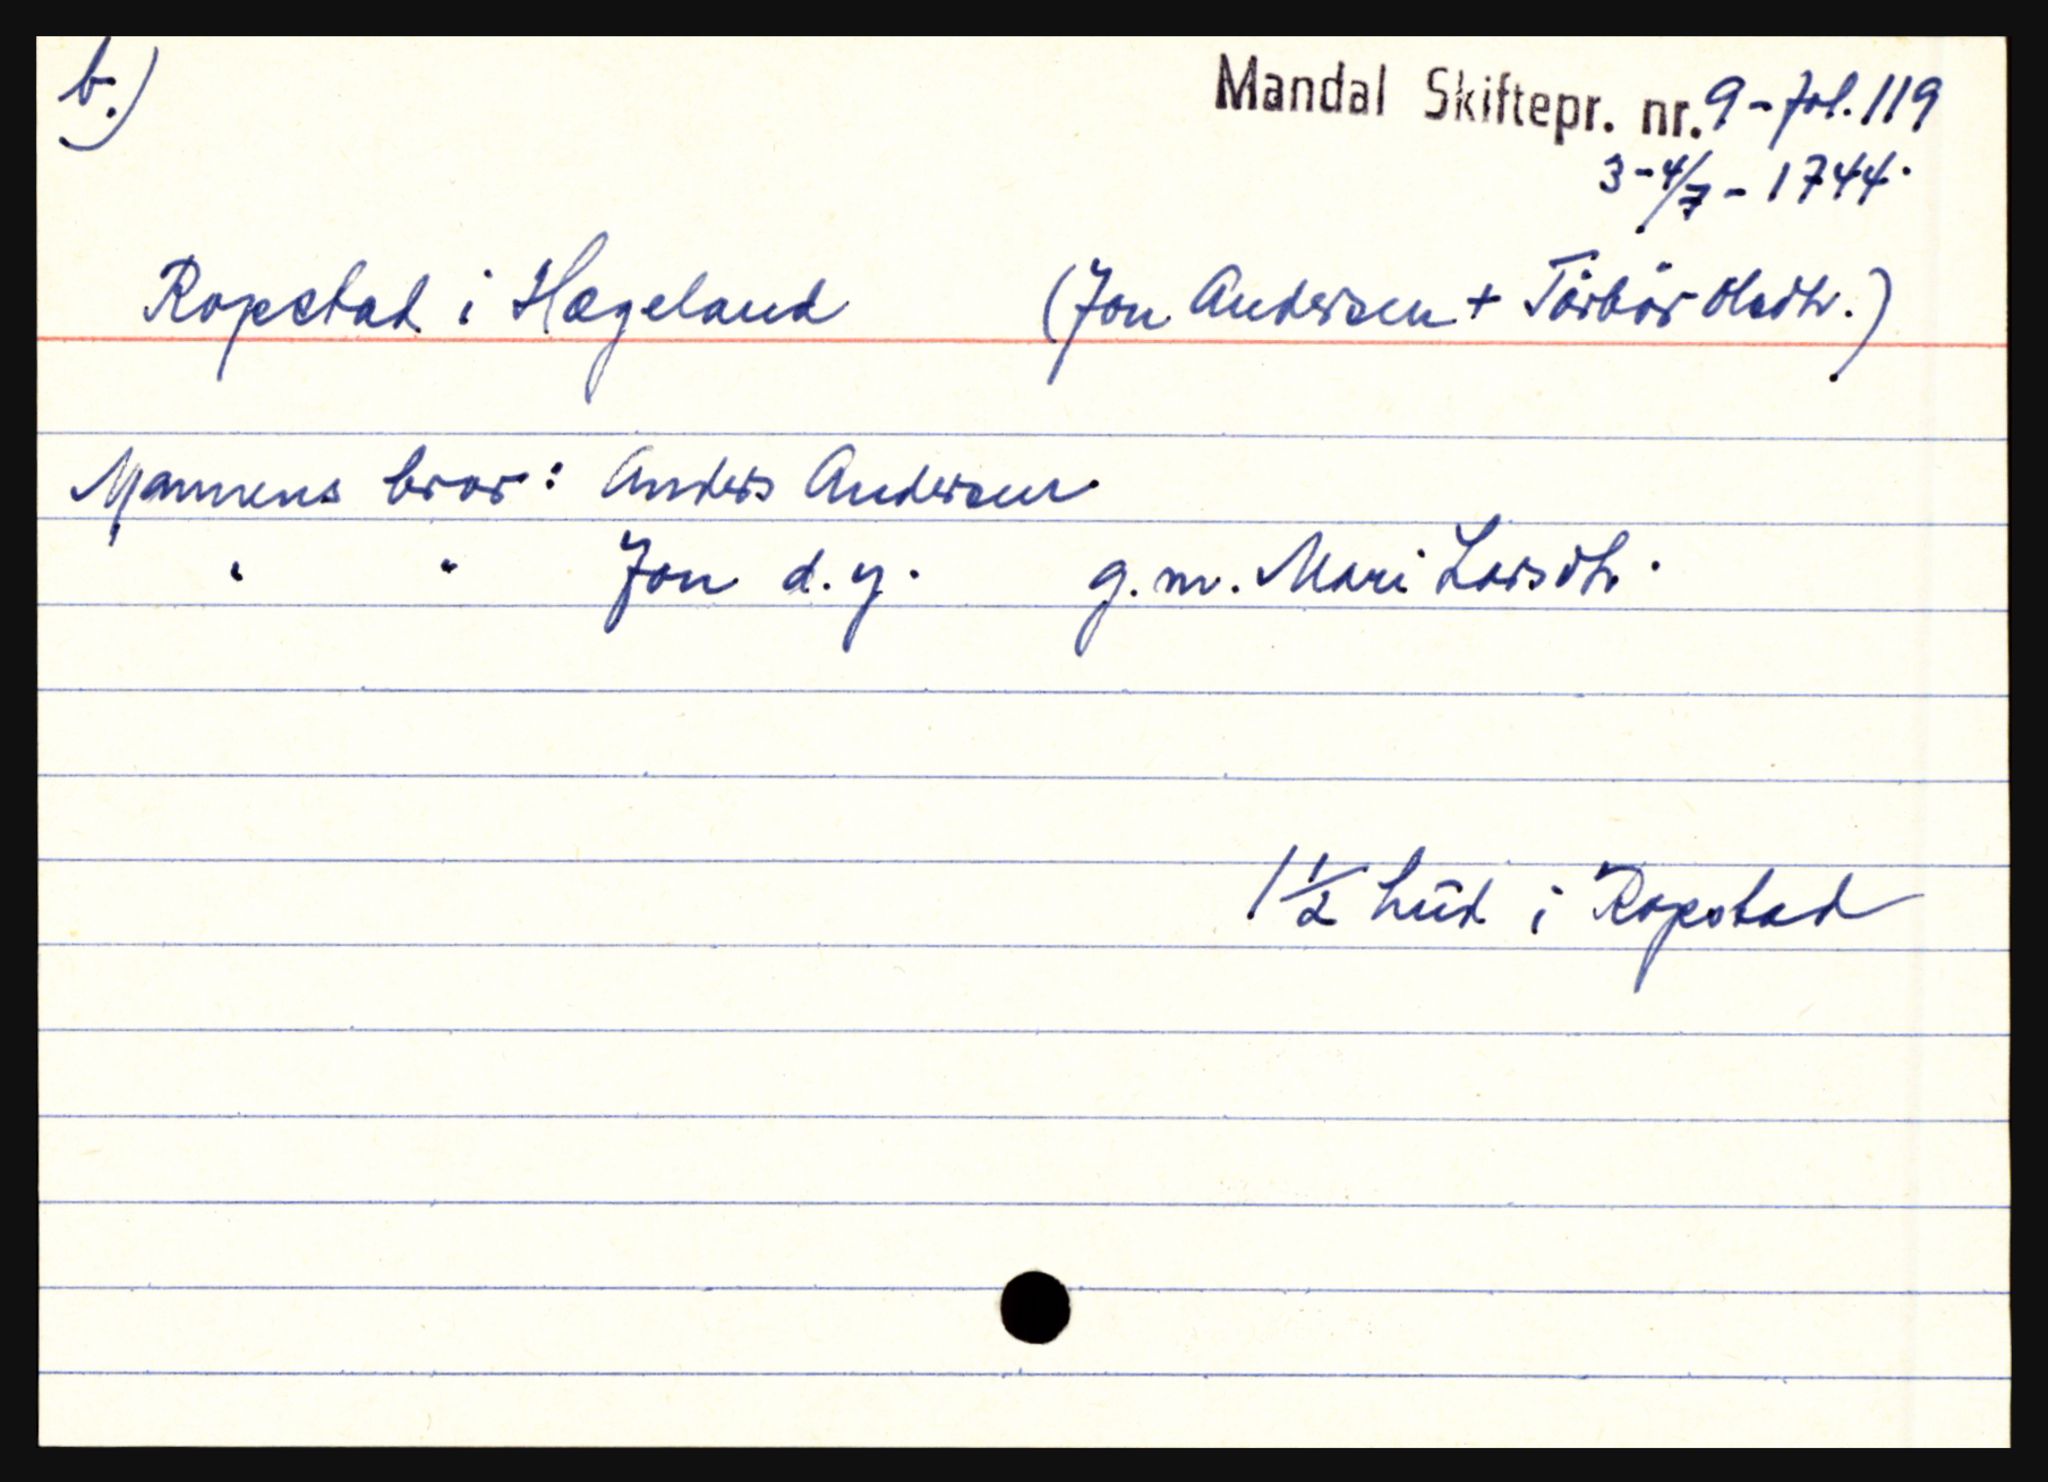 b.)
Mandal Skiftepr. nr. 9 - fol. 119
3-4/7 - 1744.
Ropstad i Hægeland (Jon Andersen + Tårbår Olsdtr.)
Mannens bror: Anders Andersen
" " Jon d.y. g.m. Mari Larsdtr.
1 1/2 hud i Ropstad